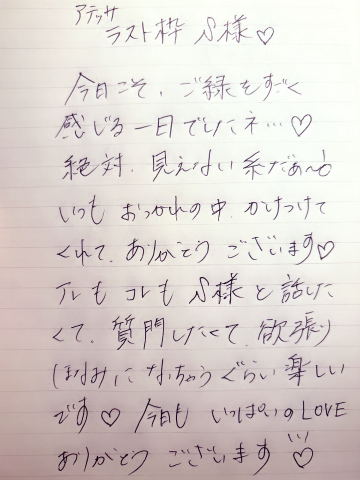 アテッサ
ラスト枠 S様♡
今日こそ、ご縁をすごく
感じる一日でしたネ…♡
絶対、見えない糸だぁ〜!
いつも おつかれの中、かけつけて
くれて、ありがとう ございます♡
アレも コレも S様と話した
くて、質問したくて、欲張り
ほなみに なっちゃうぐらい 楽しい
です♡ 今日も いっぱいのLOVE
ありがとう ございます♡